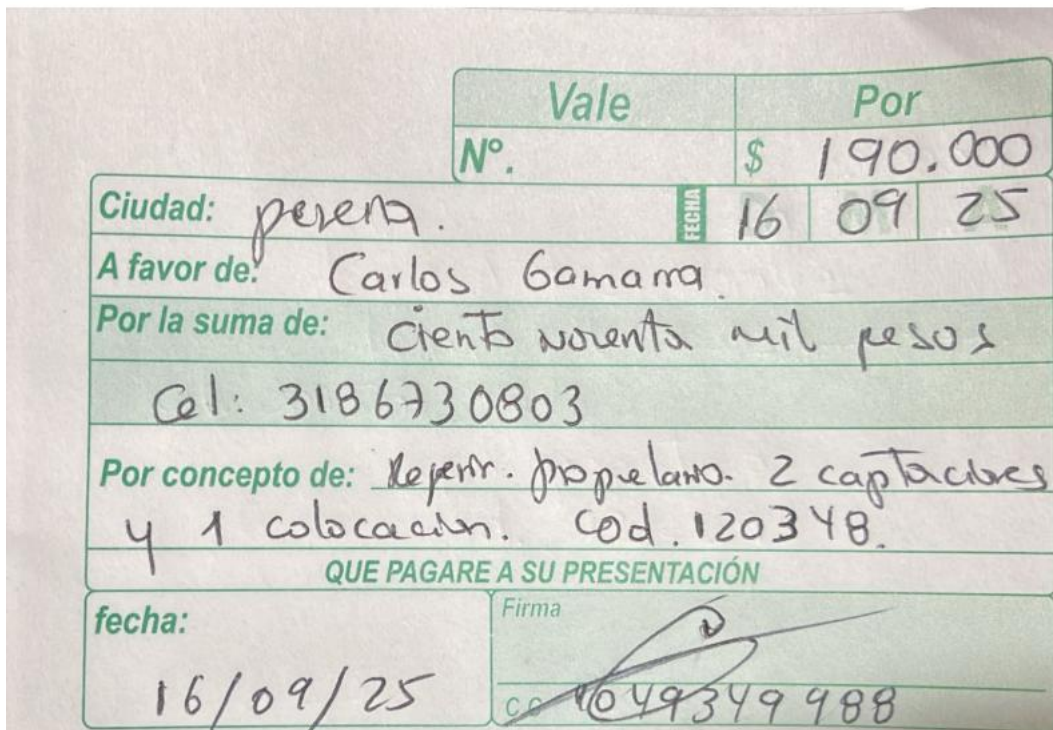 Vale Por
Nº. $ 190.000
Ciudad: pereira. FECHA 16 09 25
A favor de: Carlos Gamarra.
Por la suma de: Ciento noventa mil pesos
Cel: 3186730803
Por concepto de: propietario. 2 captaciones
y 1 colocación. Cod. 120348.
QUE PAGARE A SU PRESENTACIÓN
fecha: Firma
16/09/25 C.C 1049349988